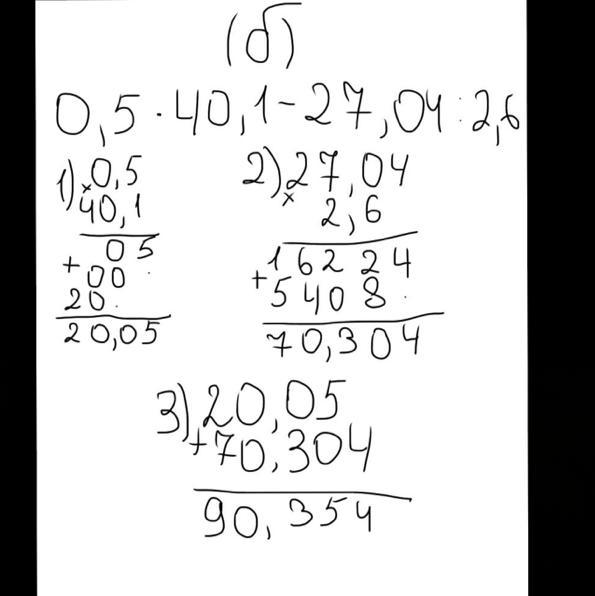 (б)
0,5 · 40,1 - 27,04 : 2,6
1) × 0,5
40,1
05
+ 00
20
20,05
2) × 27,04
2,6
16224
+ 5408
70,304
3) + 20,05
70,304
90,354